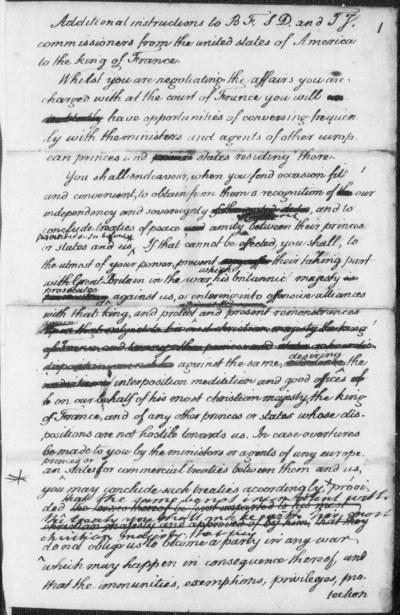 1
Additional instructions to B F. S D. and T J.
commissioners from the united states of America
to the king of France.
Whilst you are negotiating the affairs you are
charged with at the court of France you will
have opportunities of conversing frequent
ly with the ministers and agents of other europ
ean princes and states residing there.
You shall endeavour, when you find occasion fit
and convenient, to obtain from them a recognition of our
independency and sovereignty and to
conclude treaties of peace amity between their princes
or states and us. If that cannot be effected, you shall, to
the utmost of your power, prevent their taking part
with Great Britain in the war which his britannic majesty
prosecutes against us, or entering into offensive alliances
with that king, and protest and present remonstrances
against the same, desiring the
interposition mediation and good offices
on our behalf of his most christian majesty the king
of France, and of any other princes or states whose dis-
positions are not hostile towards us. In case overtures
be made to you by the ministers or agents of any europe
an princes or states for commercial treaties between them and us,
you may conclude such treaties accordingly, provi-
ded that the same be not inconsistent with
the treaty you with his most
christian majesty, that they
do not oblige us to become a party in any war
which may happen in consequence thereof, and
that the immunities, exemptions, privileges, pro-
tection